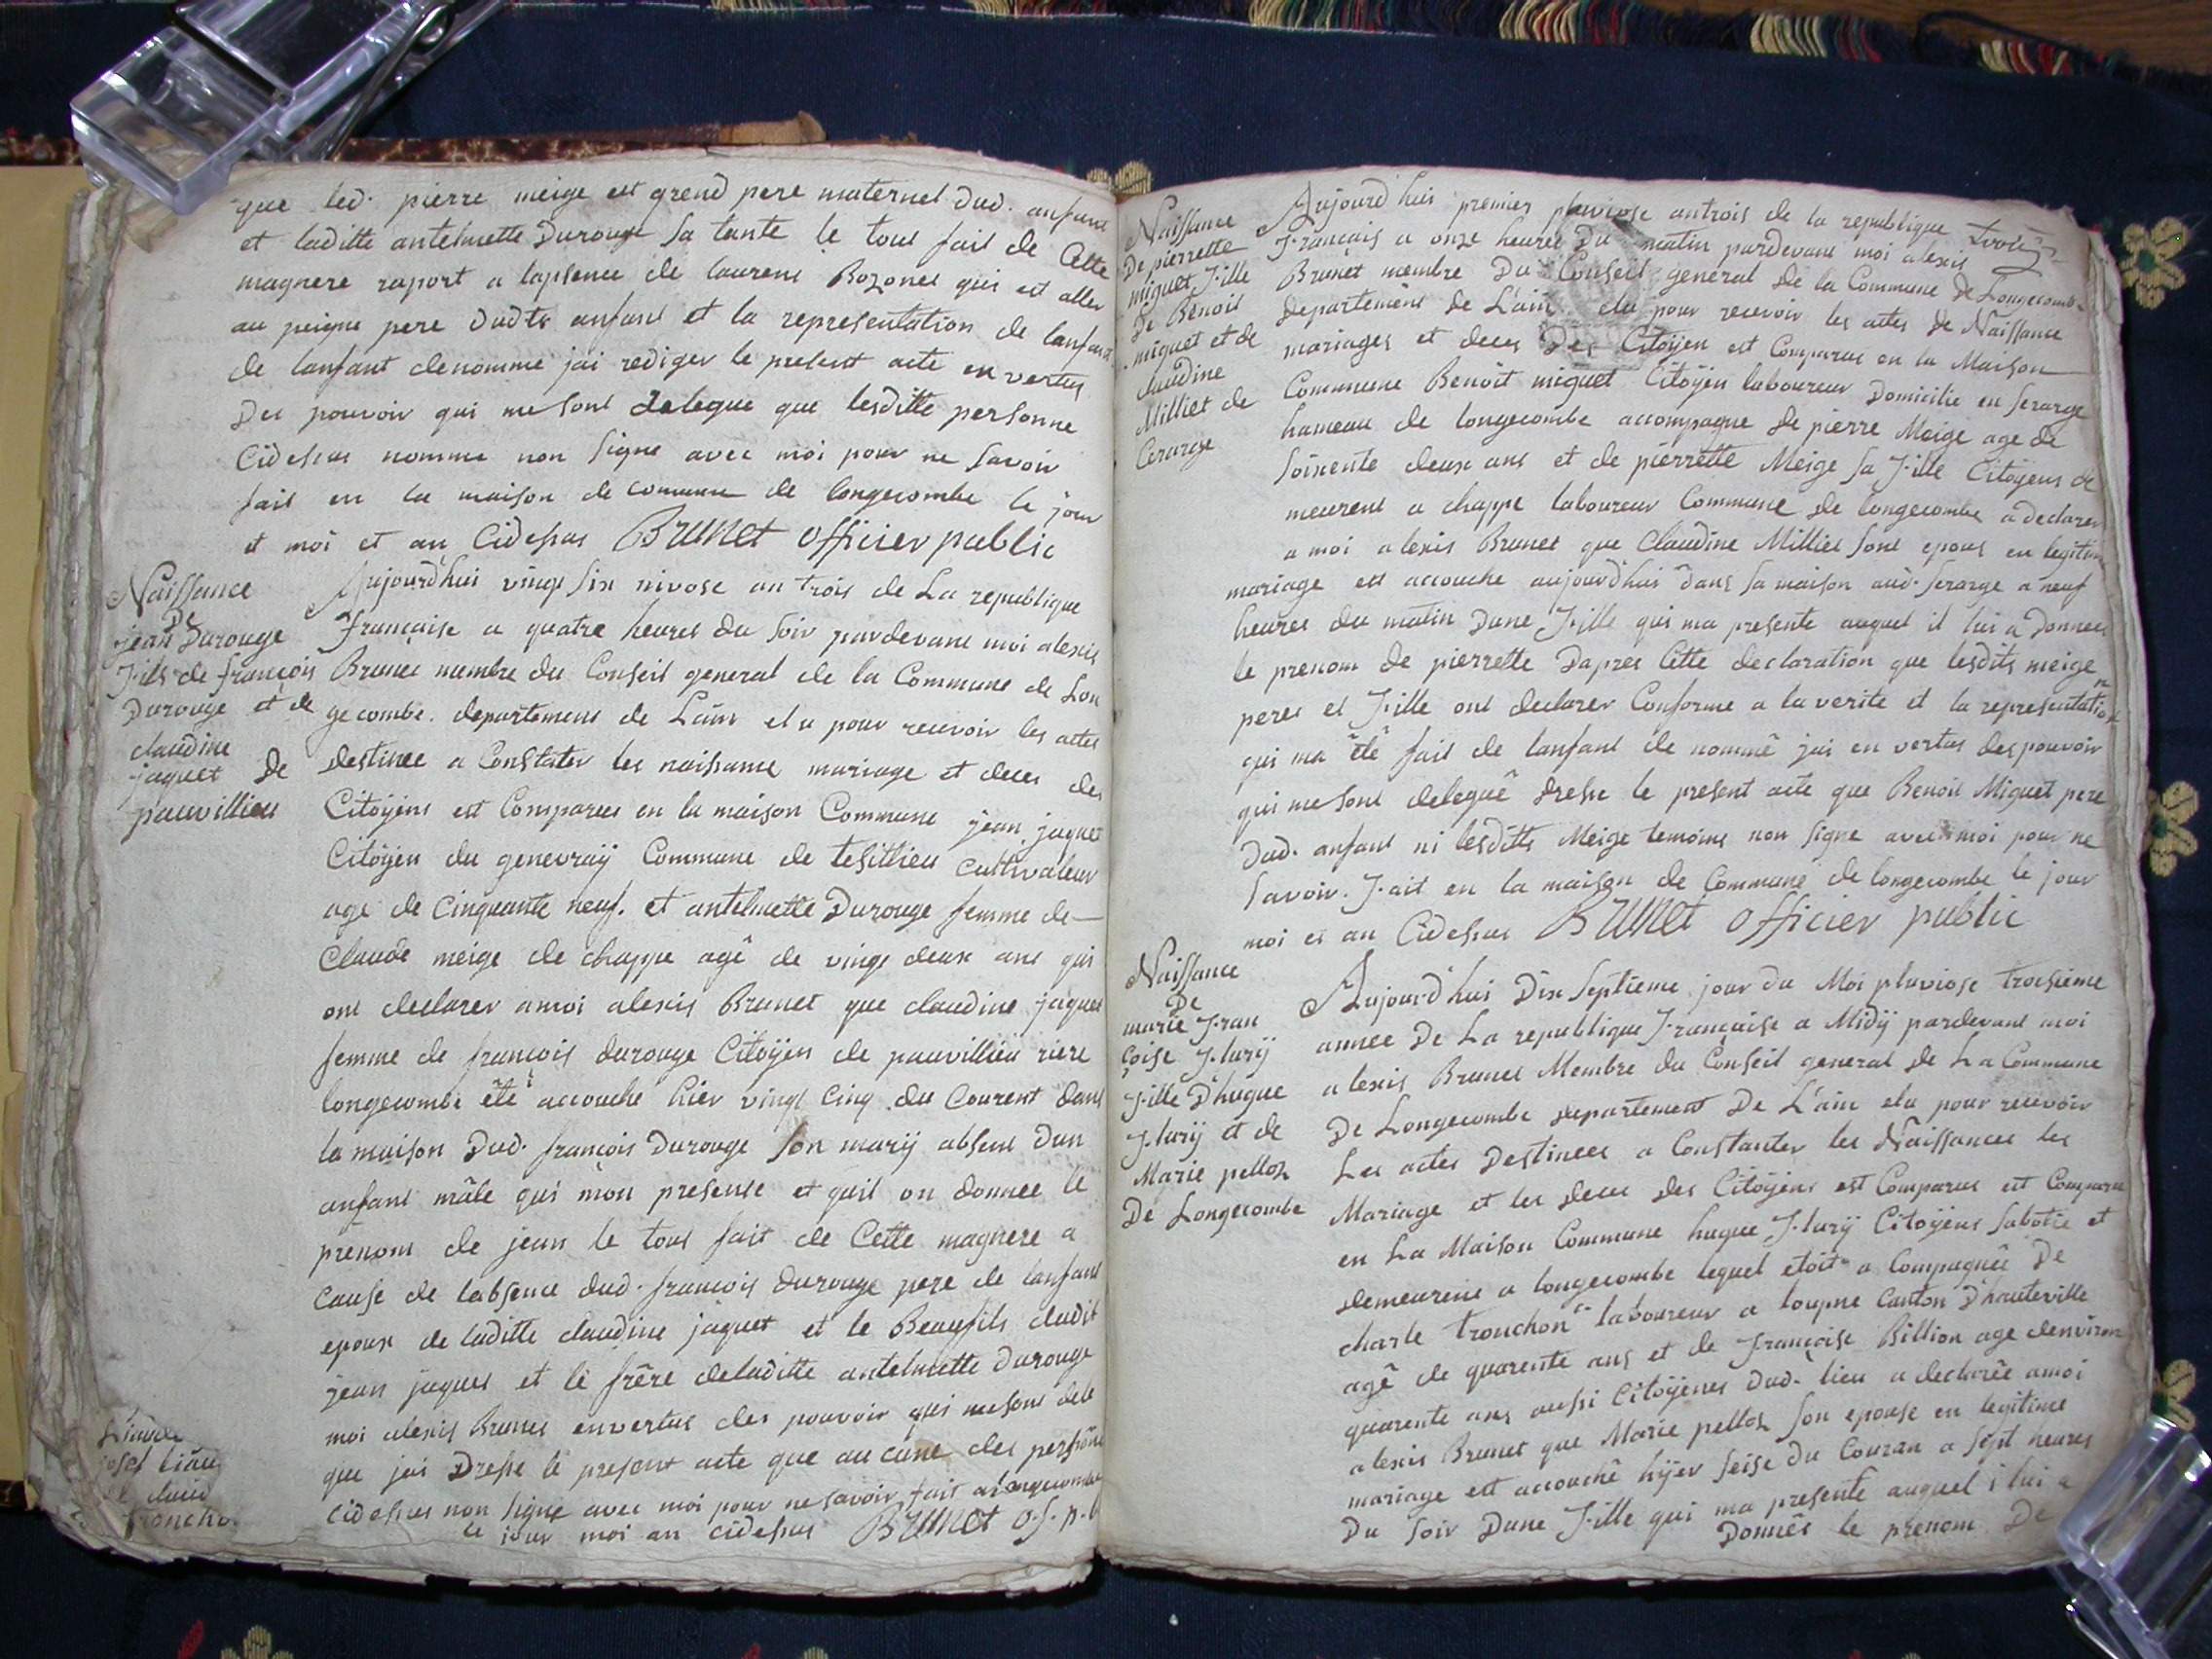 que led. pierre meige est grend pere maternel dud. anfant
et laditte antelmette Durouge sa tante le tout fait de Cette
magnere raport a lapsence de laurent Bozonet qui est aller
au peigne pere dudts anfant et la representation de lanfant
de lanfant denomme jai rediger le present acte en vertus
Des pouvoir qui me sont delegue que lesditte personne
Cidessus nomme non signe avec moi pour ne savoir
fait en la maison de comune de longecombe le jour
et moi et an Cidessus Brunet officier public
Naissance
De
jean Durouge
Fils de françois
Durouge et de
claudine
jaquet De
pauvillieu
Aujourd'hui vingt six nivose an trois de La republique
Française a quatre heures du soir pardevant moi alexis
Brunet membre du Conseil general de la Commune de Lon
gecombe. departement de Lain elu pour recevoir les actes
destinee a Constater les naissance mariage et deces des
Citoÿens est Comparus en la maison Commune jean jaquet
Citoÿen du genevraÿ Commune de tesillieu cultivateur
age de Cinquante neuf. et antelmette Durouge femme de
Claude meige de chappe agê de vingt deux ans qui
ont declarer amoi alexis Brunet que claudine jaquet
femme de francois durouge Citoÿen de pauvillieu riere
longecombe êtê accouche hier vingt Cinq du Courent dans
la maison Dud. françois Durouge son marij absent dun
anfant mâle qui mon presente et quil on donnee le
prenom de jean le tout fait de Cette magnere a
cause de labsence dud. francois durouge pere de lanfant
epoux de laditte claudine jaquet et le Beaufils dudit
jean jaquet et le frêre deladitte antelmette durouge
moi alexis Brunet envertus des pouvoir qui mesont dele
gue jai Dresse le present acte que aucune des persône
cidessus non signe avec moi pour ne savoir fait a longecombe
le jour moi an cidessus Brunet of. p.b
Naissance
De pierrette
miguet Fille
De Benoit
miguet et de
claudine
Milliet de
Cerarge
Aujourd'hui premier pluviose antrois de la republique
Francais a onze heures Du matin pardevant moi alexis
Brunet membre Du Conseil general de la Commune de Longecomb
departement de L'ain elu pour recevoir les actes de Naissance
mariages et deces Des Citoÿen est Comparus en la Maison
Commune Benôit miguet Citoÿen laboureur Domicilie en serarge
hameau de longecombe accompagne de pierre Meige age de
soixente deux ans et de pierrette Meige sa Fille Citoÿens de
meurent a chappe laboureur Commune de longecombe a declarer
a moi alexis Brunet que Claudine Milliet sont epous en legitim
mariage est accouche aujourd'hui dans sa maison aud. serarge a neuf
heures du matin Dune Fille qui ma presente auquel il lui a Donnee
le prenom de pierrette Dapres Cette declaration que lesdits meige
peres et Fille ont declarer Conforme a la verite et la representation
qui ma êtê fait de lanfant de nommê jai en vertus des pouvoir
qui me sont deleguê dresse le present acte que Benoit Miguet pere
Dud. anfant ni lesditts Meige temoins non signe avec moi pour ne
savoir. Fait en la maison de Commune de longecombe le jour
moi et an Cidessus Brunet officier public
Naissance
De
marie Fran
çoise Flurÿ
Fille D'hugue
Flurÿ et de
Marie pelloz
De Longecombe
Aujourd'hui Dix septieme jour du Moi pluviose troisieme
annee De La republique Française a Midÿ pardevant moi
alexis Brunet Membre du Conseil general de La Commune
De Longecombe departement De L'ain elu pour recevoir
Les actes Destinees a Constanter les Naissances les
Mariage et les deces des Citoÿens est Comparus est Comparu
en La Maison Commune hugue Flurÿ Citoÿens sabotie et
demeurent a longecombe lequel etoit a Compagnêe De
charle tronchon laboureur a Canton D'hauteville
agê de quarente ans et de Françoise Billion age denviron
quarente ans aussi Citoÿenes Dud. lieu a declarêe amoi
alexis Brunet que Marie pelloz son epouse en legitime
mariage est accouchê hÿer seise du Couran a sept heures
Du soir Dune Fille qui ma presentê auquel i lui a
Donnês le prenom De